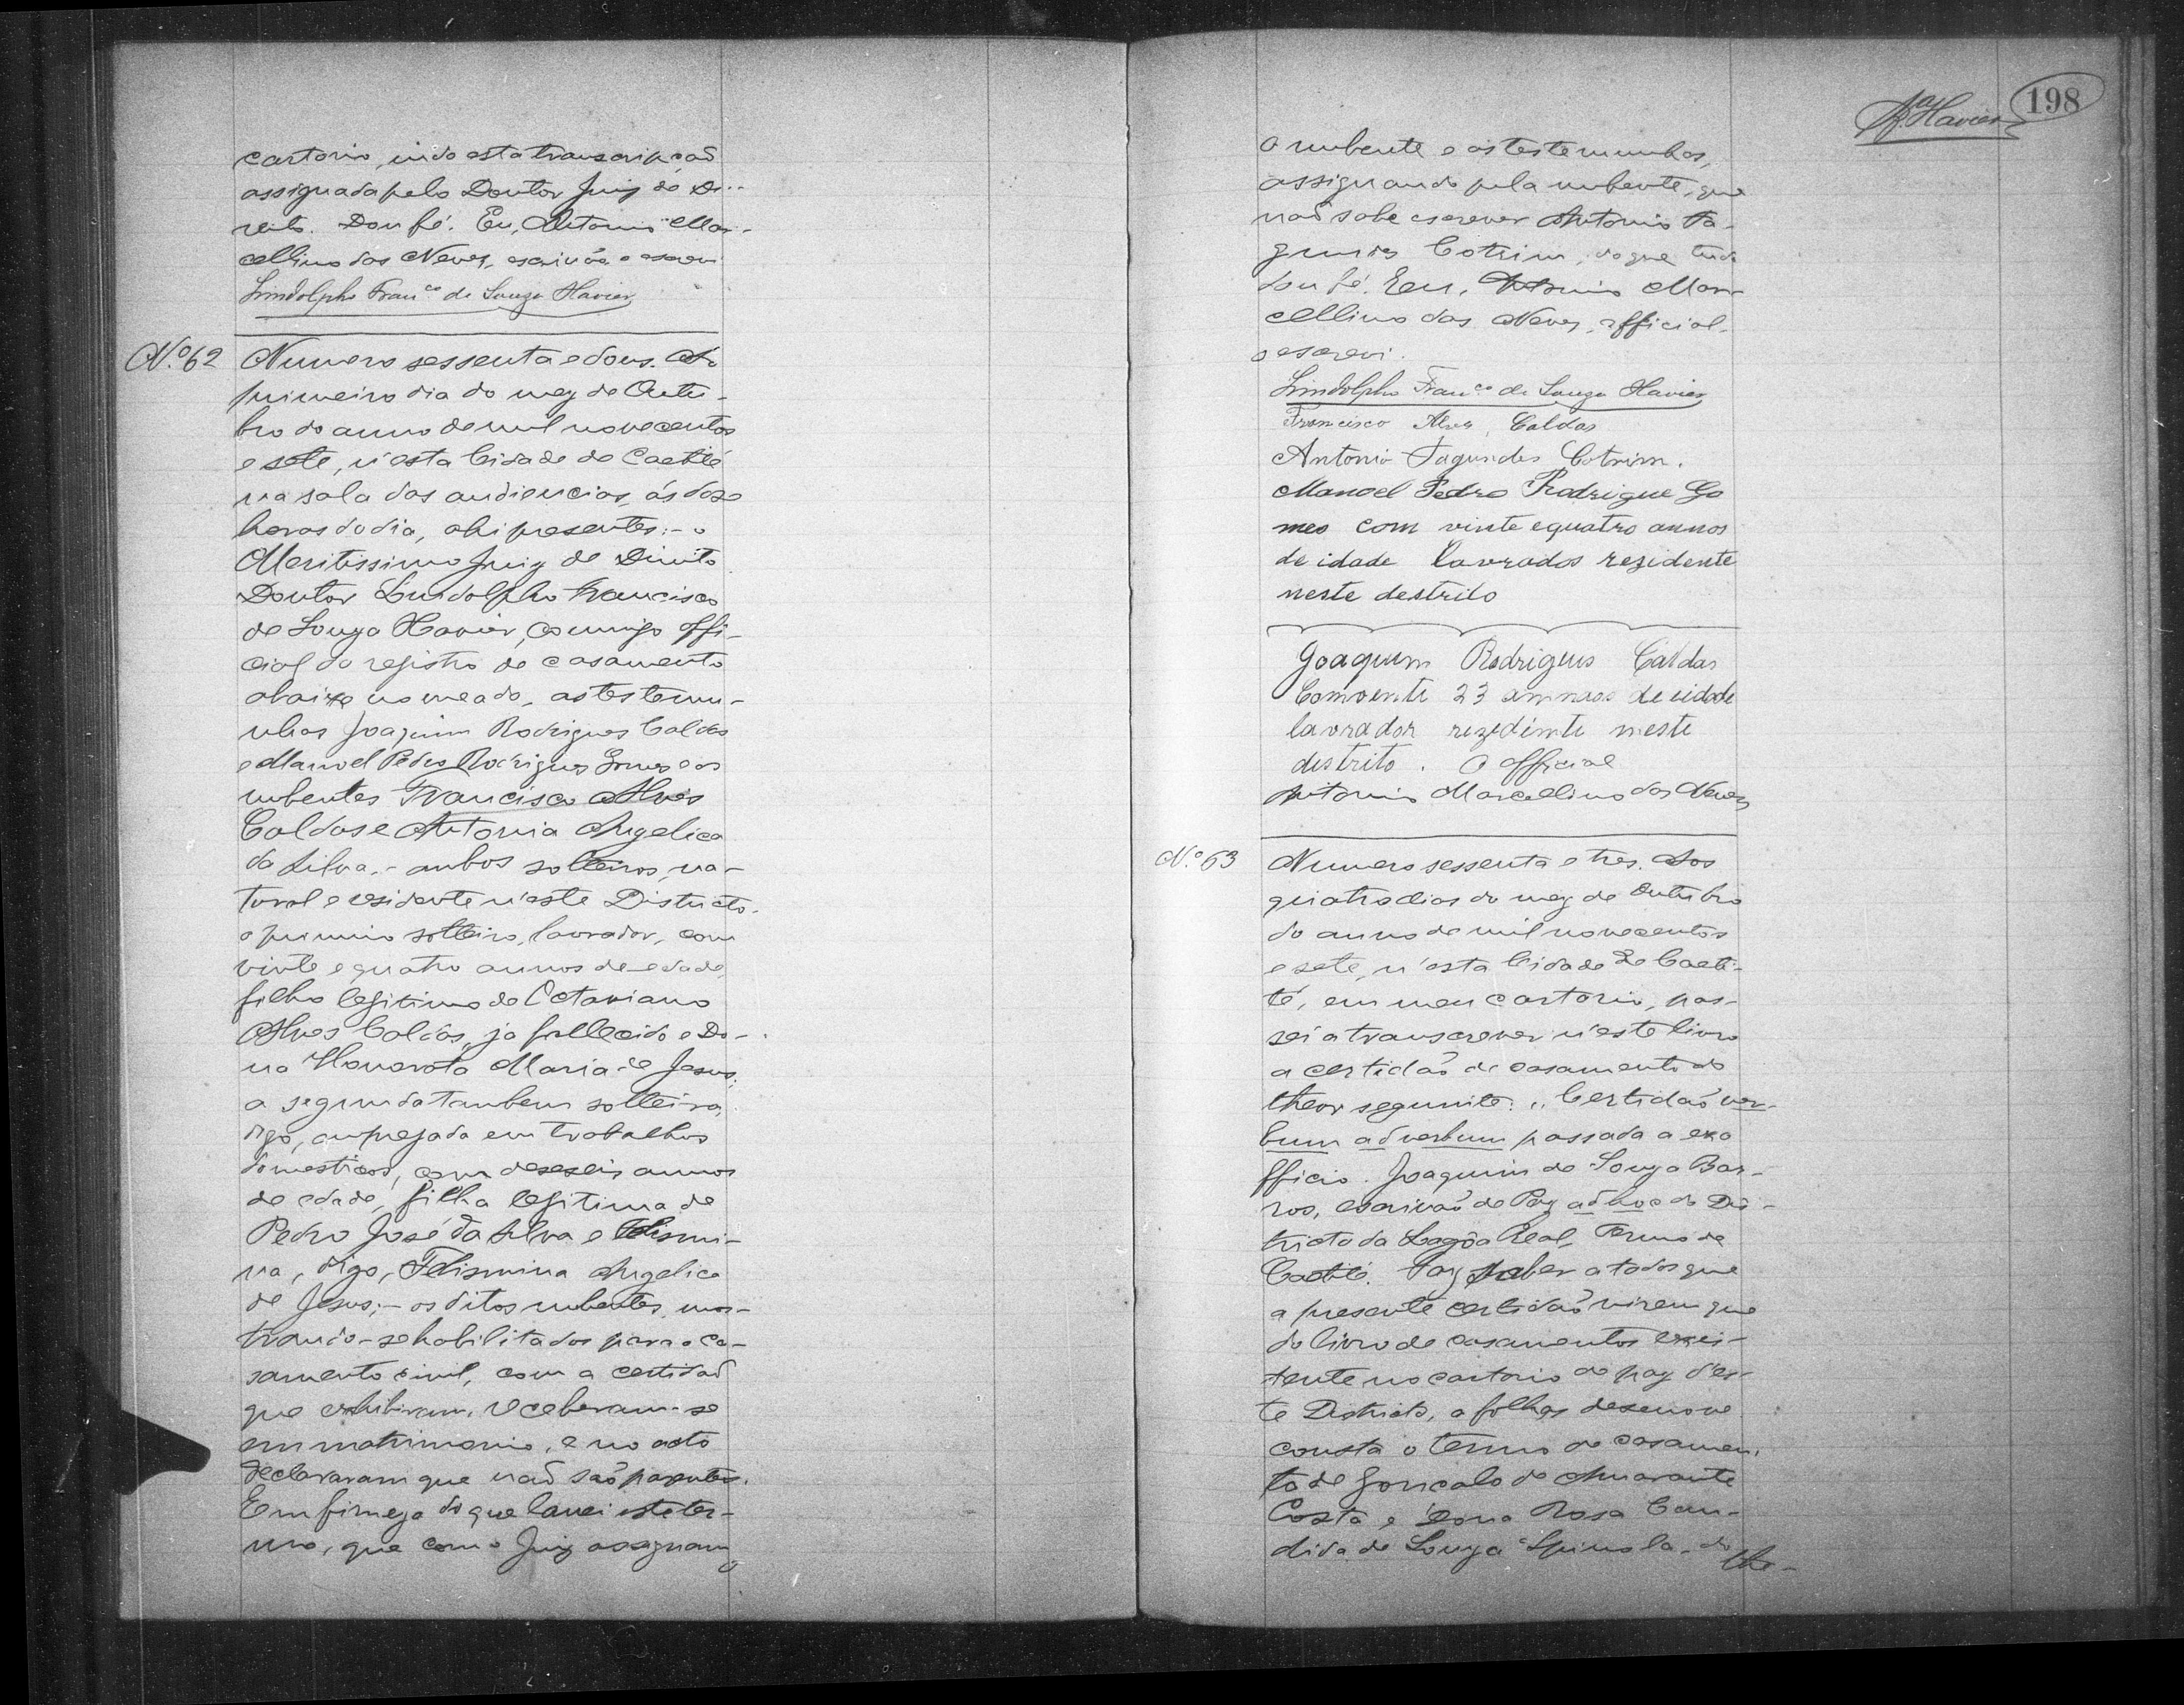 cartorio, indo esta transcripçaõ
assignada pelo Doutor Juiz de Di-
reito. Dou fé. Eu, Antonio Mar-
cellino das Neves, escrivão o escrevi
Lindolpho Franco de Souza Havier
Nº 62
Numero sessenta e dous. Ao
primeiro dia do mez de Outu-
bro do anno de mil novecentos
e sete, n'esta Cidade de Caetité
na sala das audiencias, ás doze
horas do dia, ahi presentes:- o
Meritissimo Juiz de Direito
Doutor Lindolpho Francisco
de Souza Havier, comigo offi-
cial do registro de casamento
abaixo nomeado, as testemu-
nhas Joaquim Rodrigues Caldas
e Manoel Pedro Rodrigues Gomes e os
nubentes Francisco Alves
Caldas e Antonia Angelica
da Silva,- ambos solteiros, na-
tural e residente n'este Districto.
o primeiro solteiro, lavrador, com
vinte e quatro annos de edade,
filho legitimo de Octaviano
Alves Caldas, já fallecido e Do-
na Honorata Maria de Jesus;
a segunda tambem solteira,
digo, empregada em trabalhos
domesticos, com deseseis annos
de edade, filha legitima de
Pedro José da Silva e Felismi-
na, digo, Felismina Angelica
de Jesus;- os ditos nubentes, mos-
trando-se habilitados para o ca-
samento civil, com a certidaõ
que exhibiram, receberam-se
em matrimonio, e no acto
declararam que naõ saõ parentes.
Em firmeza do que lavrei este ter-
mo, que com o Juiz assignam
198
o nubente e as testemunhas,
assignando pela nubente, que
naõ sabe escrever Antonio Fa-
gundes Cotrim, do que tudo
dou fé. Eu, Antonio Mar-
cellino das Neves, official,
o escrevi.
Lindolpho Franco de Souza Havier
Francisco Alves Caldas
Antonio Fagundes Cotrim.
Manoel Pedro Rodrigue Go
mes com vinte e quatro annos
de idade lavrador rezidente
neste destrito
Joaquim Rodrigues Caldas
Comvente 23 amnaos de eidade
lavrador rezedimte meste
distrito. O official
Antonio Marcellino das Neves
Nº 63
Numero sessenta e tres. Aos
quatro dias do mez de Outubro
do anno de mil novecentos
e sete, n'esta Cidade de Caeti-
té, em meu cartorio, pas-
sei a transcrever n'este livro
a certidaõ de casamento do
theor seguinte: „Certidaõ ver-
bum ad verbum passada a exo
fficio. Joaquim de Souza Bar-
ros, escrivaõ de Paz ad hoc do Dis-
tricto da Lagôa Real, Termo de
Caetité. Faz saber a todos que
a presente certidaõ virem que
do livro de casamentos exis-
tente no cartorio de paz d'es-
te Districto, a folhas desenove
consta o termo de casamen-
to de Gonçalo de Amarante
Costa e Dona Rosa Can-
dida de Souza Spinola, do
the-